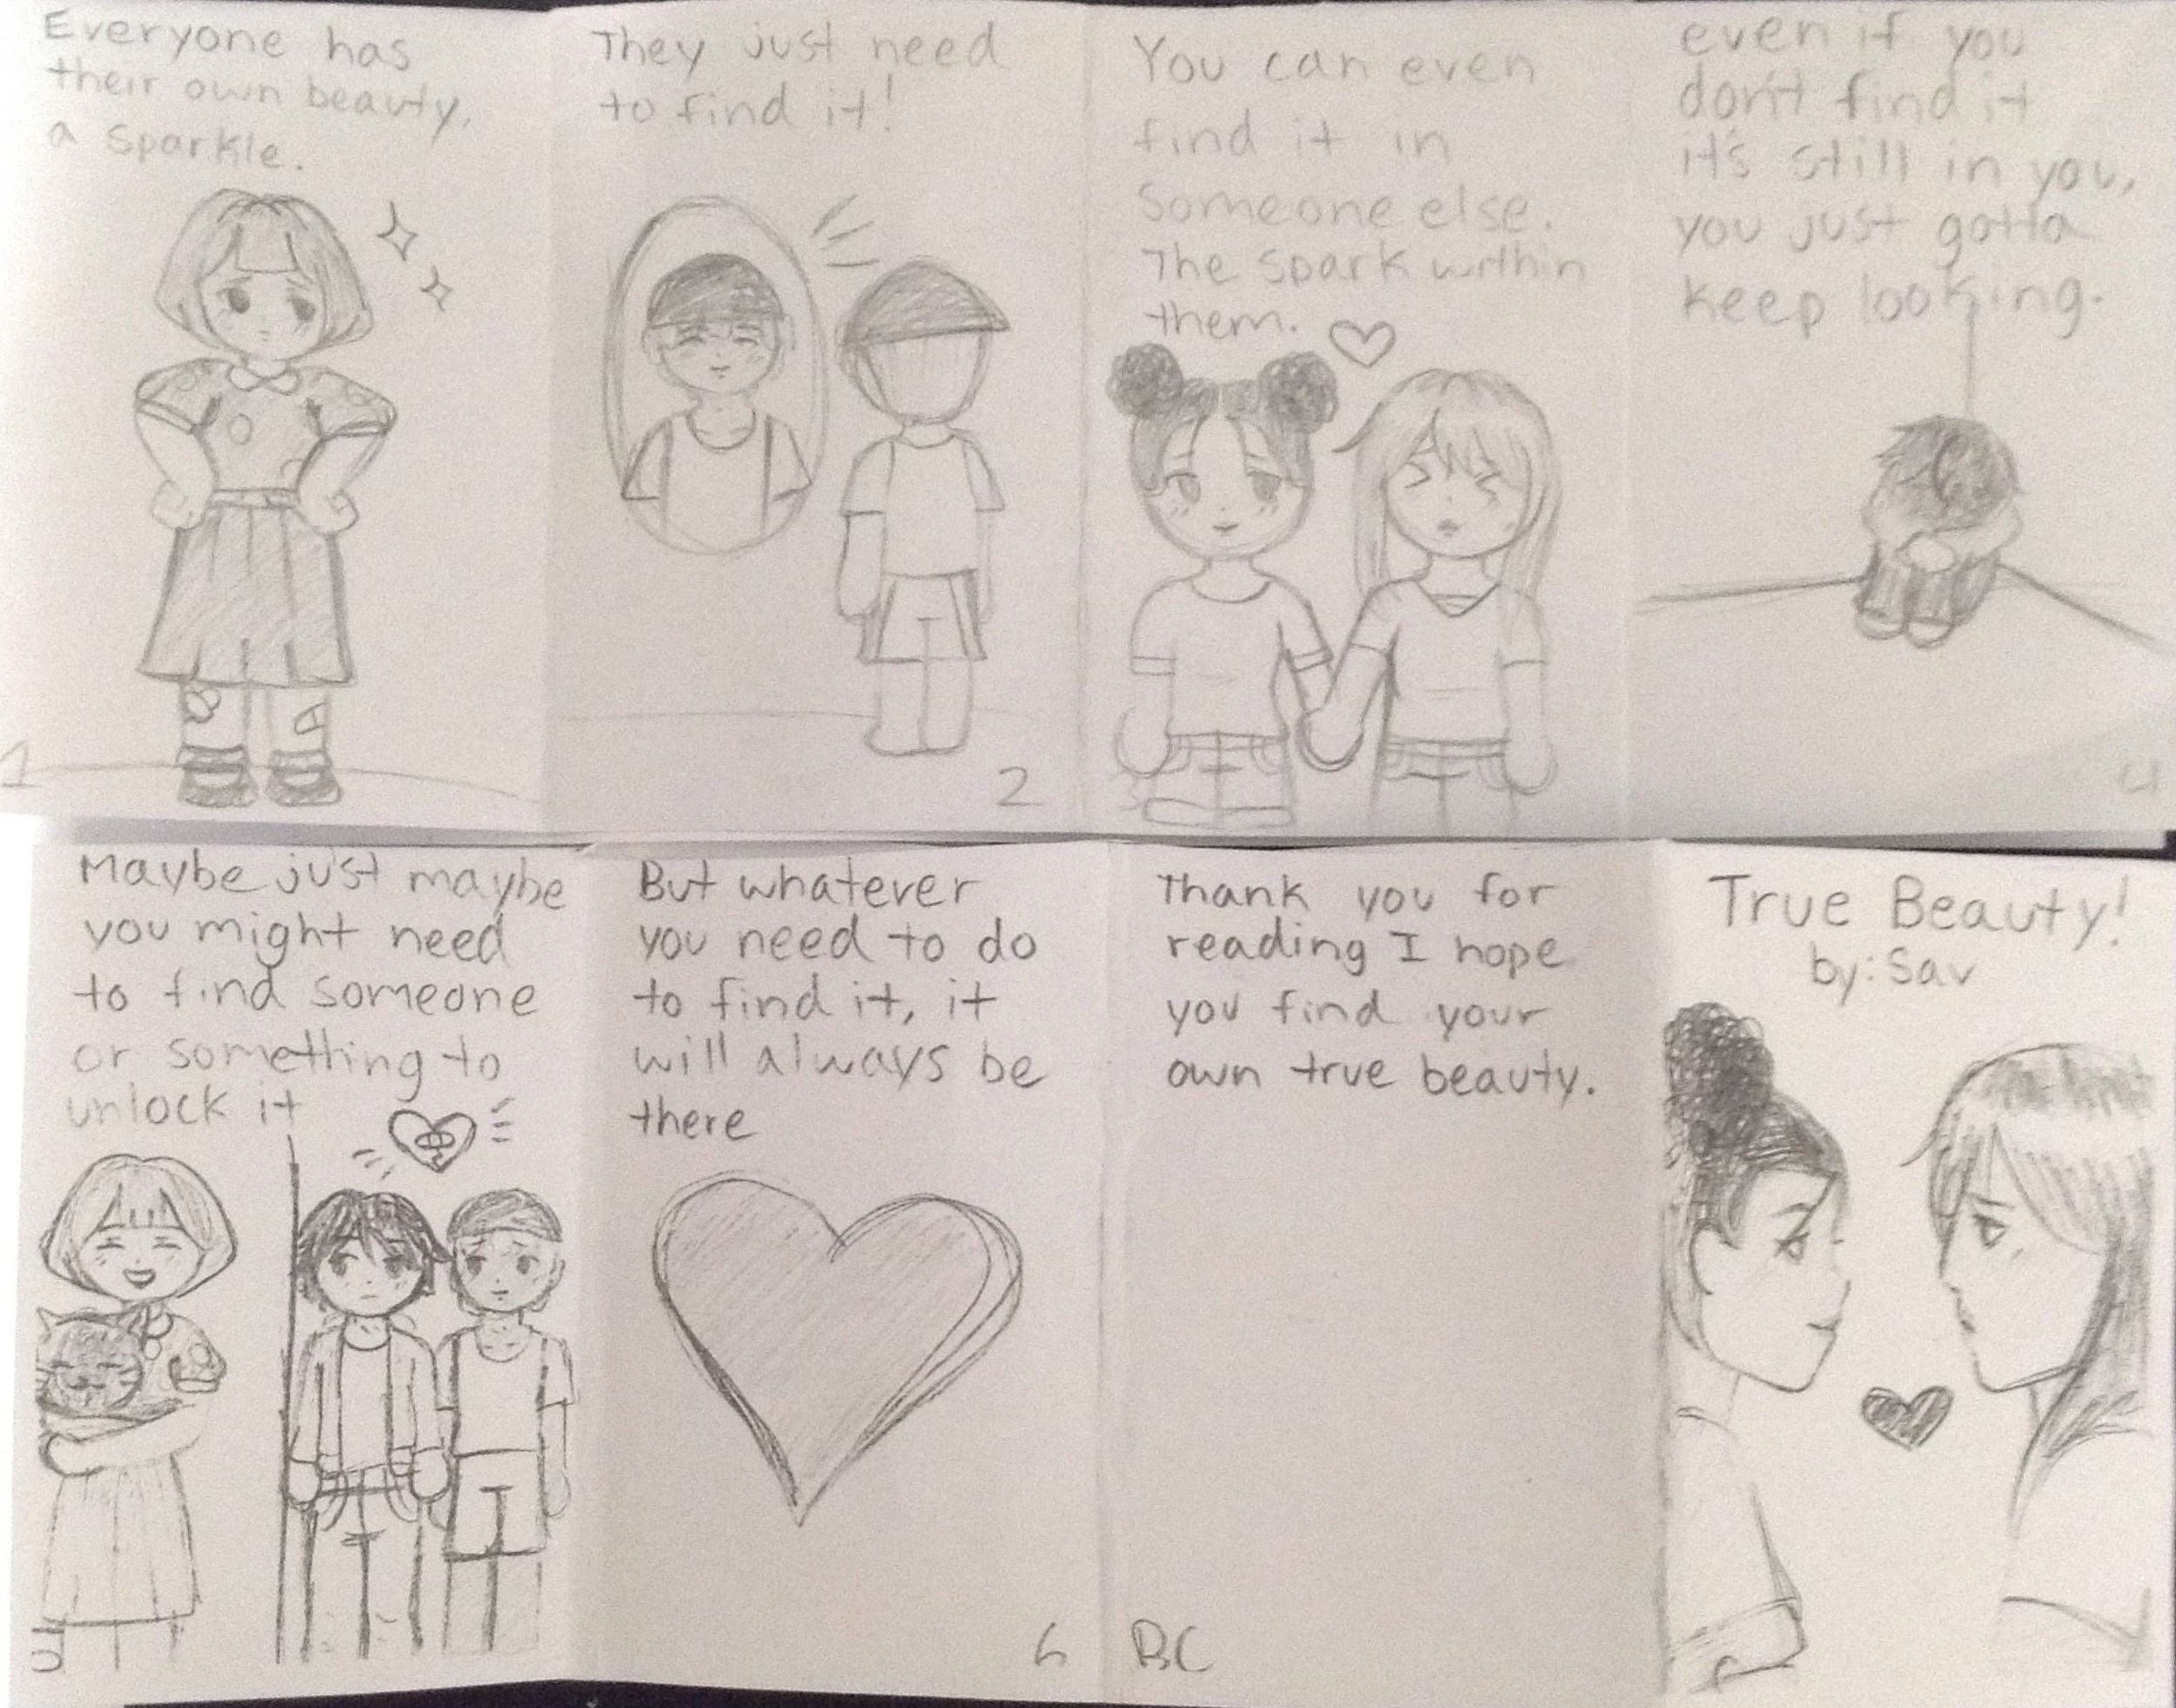 Everyone has
their own beauty,
a sparkle.
1
They just need
to find it!
2
You can even
find it in
someone else.
The spark within
them.
even if you
don't find it
it's still in you,
you just gotta
keep looking.
4
Maybe just maybe
you might need
to find someone
or something to
unlock it
5
But whatever
you need to do
to find it, it
will always be
there
6
Thank you for
reading I hope
you find your
own true beauty.
BC
True Beauty!
by: Sav